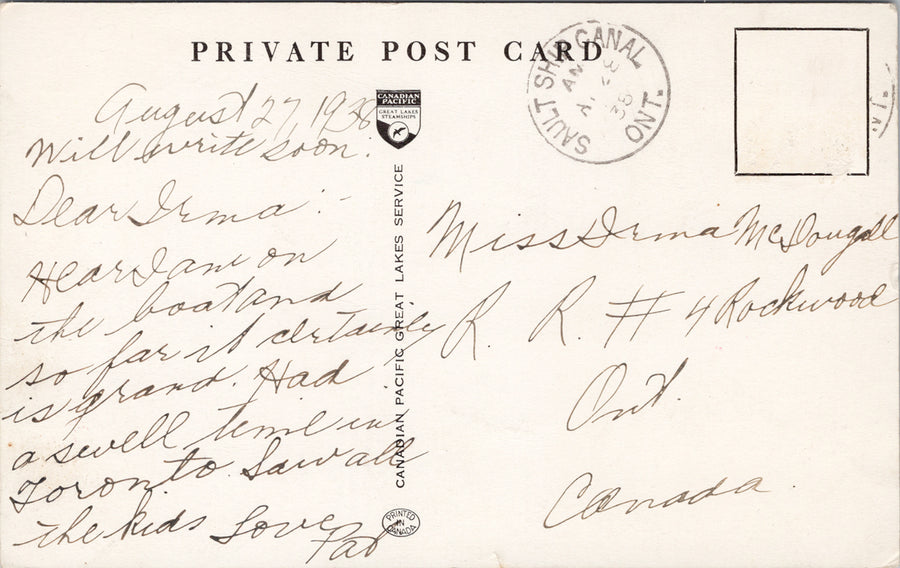 PRIVATE POST CARD
SAULT SHIP CANAL
AM
38
ONT.
CANADIAN
PACIFIC
GREAT LAKES
STEAMSHIPS
CANADIAN PACIFIC GREAT LAKES SERVICE
PRINTED
IN
CANADA
August 27, 1938
Will write soon.
Dear Irma:-
Hear I am on
the boat and
so far it certainly
is grand. Had
a swell time in
Toronto. Saw all
the kids Love
Pat
Miss Irma McDougall
R. R. # 4 Rockwood
Ont.
Canada.